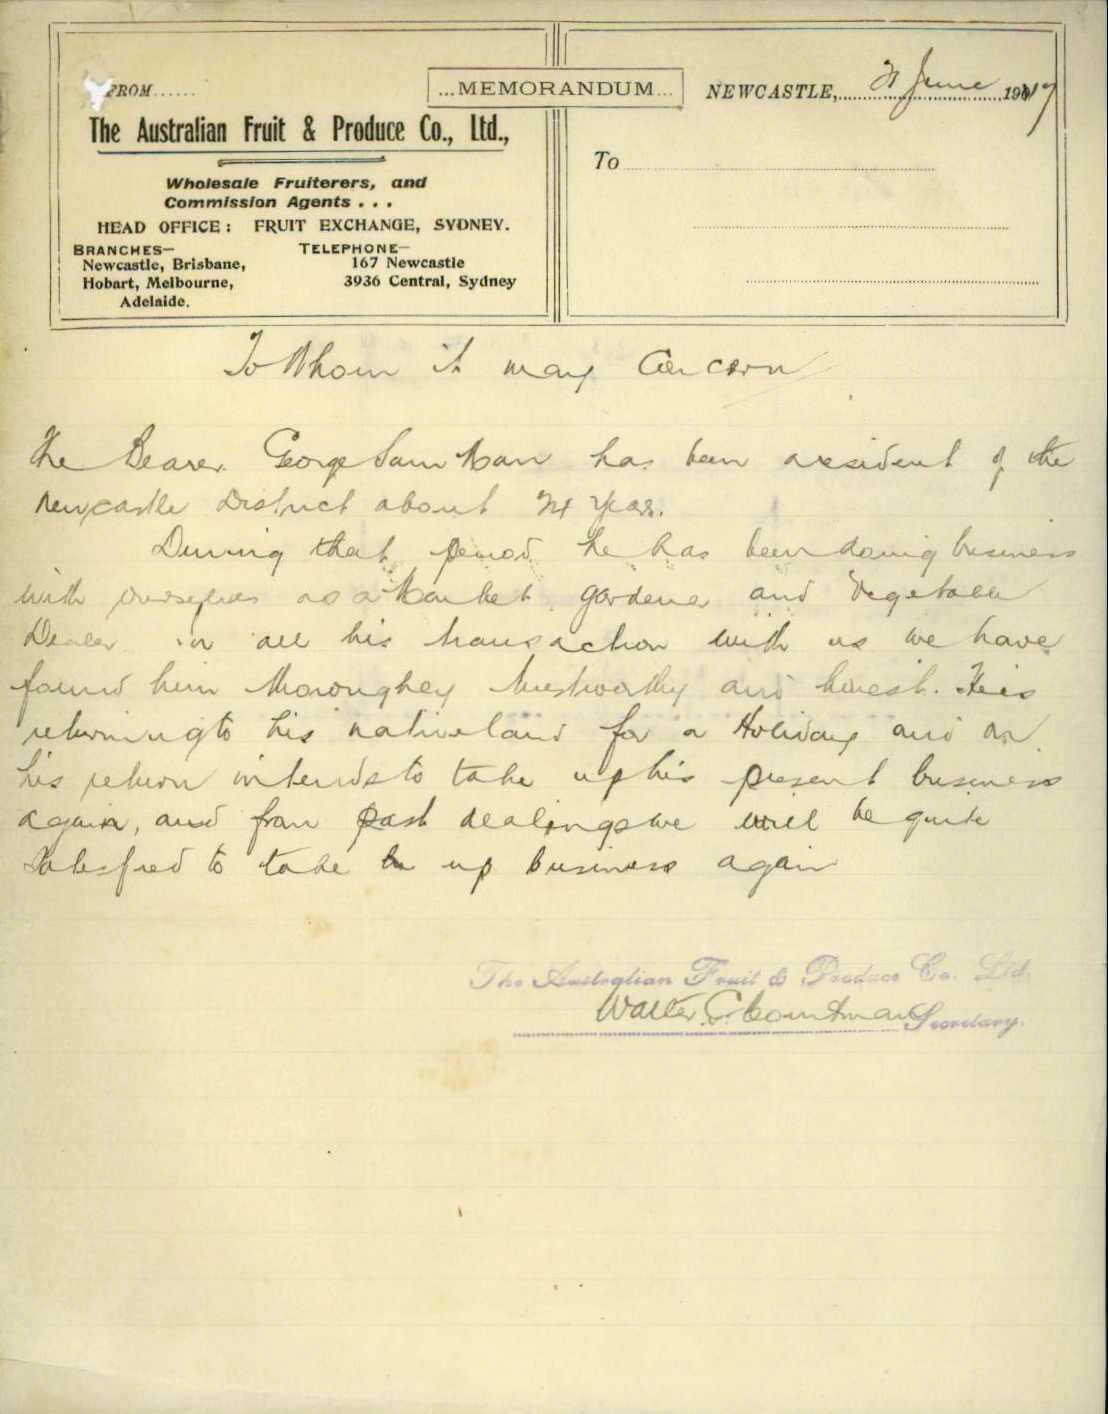 FROM......
...MEMORANDUM...
NEWCASTLE, June 1917
The Australian Fruit & Produce Co., Ltd.,
To
Wholesale Fruiterers, and
Commission Agents . . .
HEAD OFFICE: FRUIT EXCHANGE, SYDNEY.
BRANCHES—
Newcastle, Brisbane,
Hobart, Melbourne,
Adelaide.
TELEPHONE—
167 Newcastle
3936 Central, Sydney
To Whom it may Concern
The Bearer George Sam has been a resident of the
Newcastle District about Years.
During that period he has been doing business
with ourselves as a Market gardener and Vegetable
Dealer in all his transaction with us we have
found him thoroughly trustworthy and honest. He is
returning to his native land for a Holiday and on
his return intends to take up his present business
again, and from past dealings we will be quite
Satesfied to take up business again
The Australian Fruit & Produce Co. Ltd.
Walter C. Secretary.